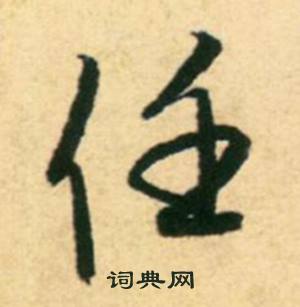 任
词典网